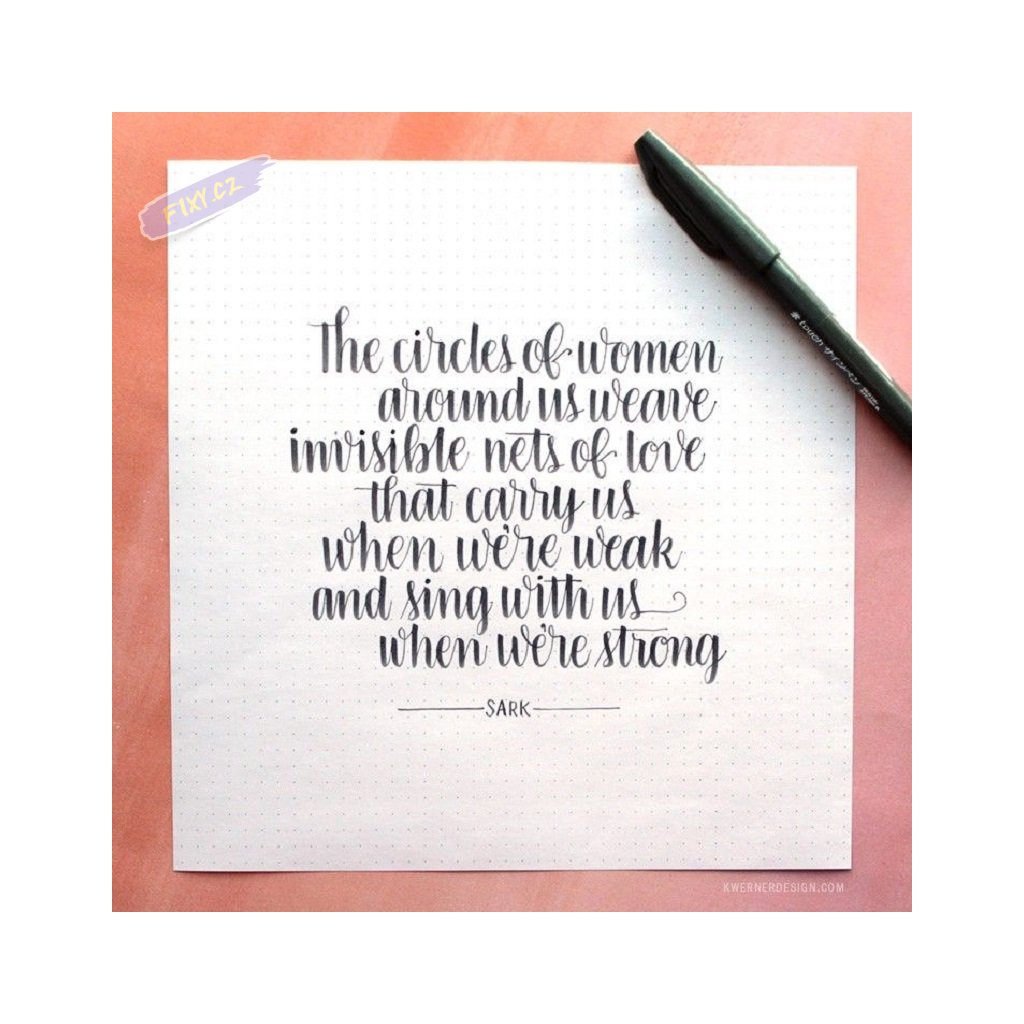 FIXY.CZ
The circles of women
around us weave
invisible nets of love
that carry us
when we're weak
and sing with us
when we're strong
SARK
# touch サインペン Pentel
KWERNERDESIGN.COM